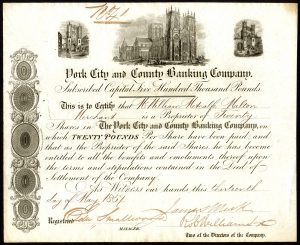 York City and County Banking Company.
Subscribed Capital Five Hundred Thousand Pounds
This is to Certify that William Metcalf Malton
Merchant is a Proprietor of Twenty
Shares in The York City and County Banking Company, on
which TWENTY POUNDS Per Share have been paid and
that as the Proprietor of the said Shares he has become
entitled to all the benefits and emoluments thereof upon
the terms and stipulations contained in the Deed of
Settlement of the Company.
As Witness our hands this thirteenth
day of May 1837
Registered Smallwood
Two of the Directors of the Company.